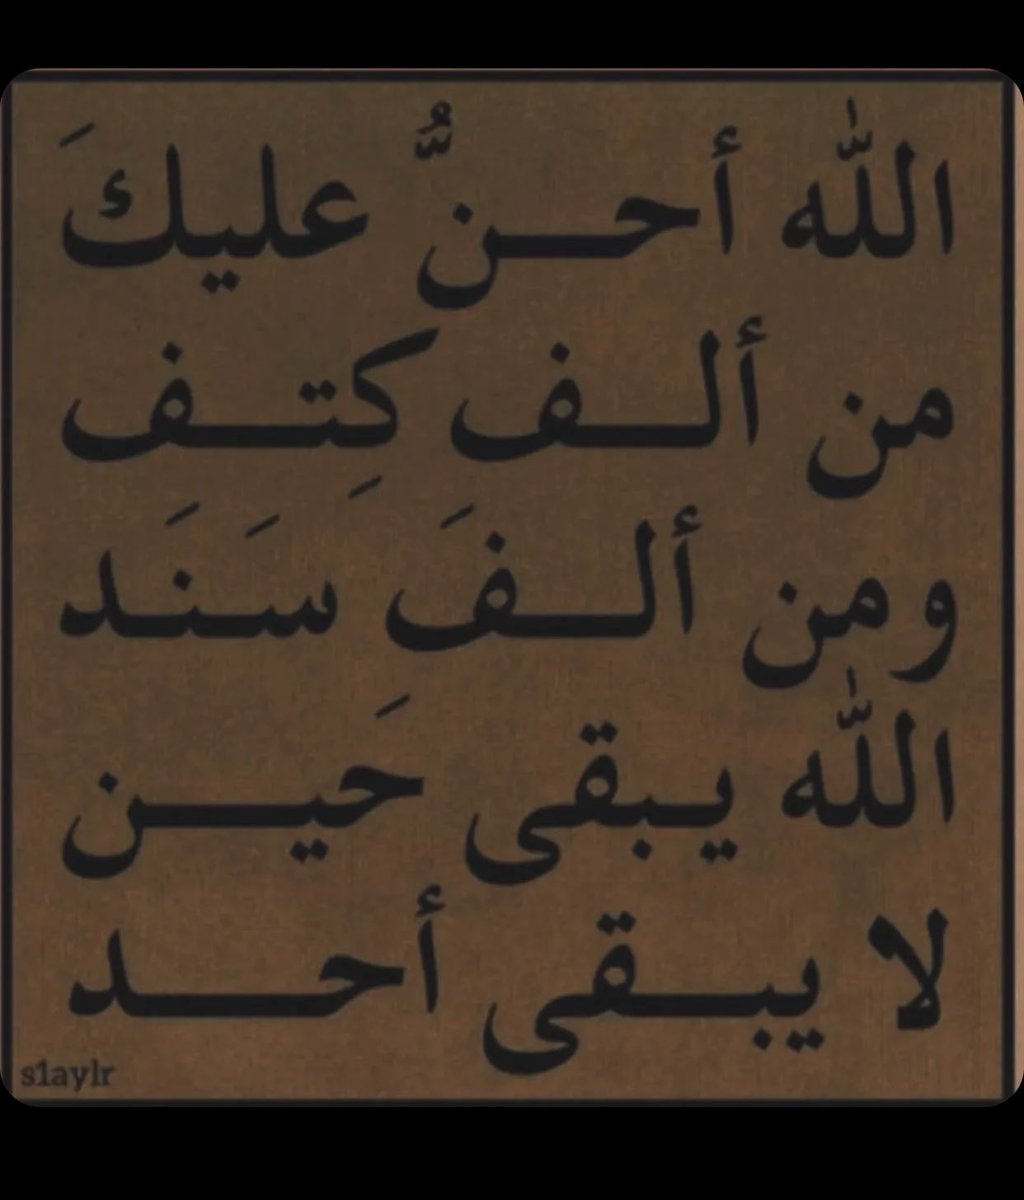 الله أحــنُّ عليكَ
من ألــف كِتــف
ومن ألــفَ سَنَد
الله يبقى حَيــن
لا يبــقى أحــد
s1aylr